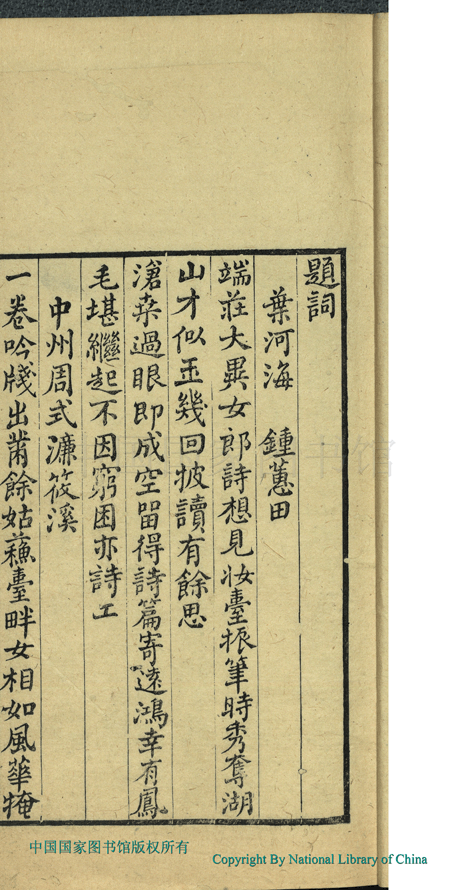 題詞
葉河海 鍾蕙田
端莊大異女郎詩想見妝臺振筆時秀奪湖
山才似玉幾回披讀有餘思
滄桒過眼即成空留得詩篇寄遠鴻幸有鳳
毛堪繼起不因窮困亦詩工
中州周式濂筱溪
一卷吟牋出莆餘姑蘓臺畔女相如風華掩
中国国家图书馆版权所有
Copyright By National Library of China